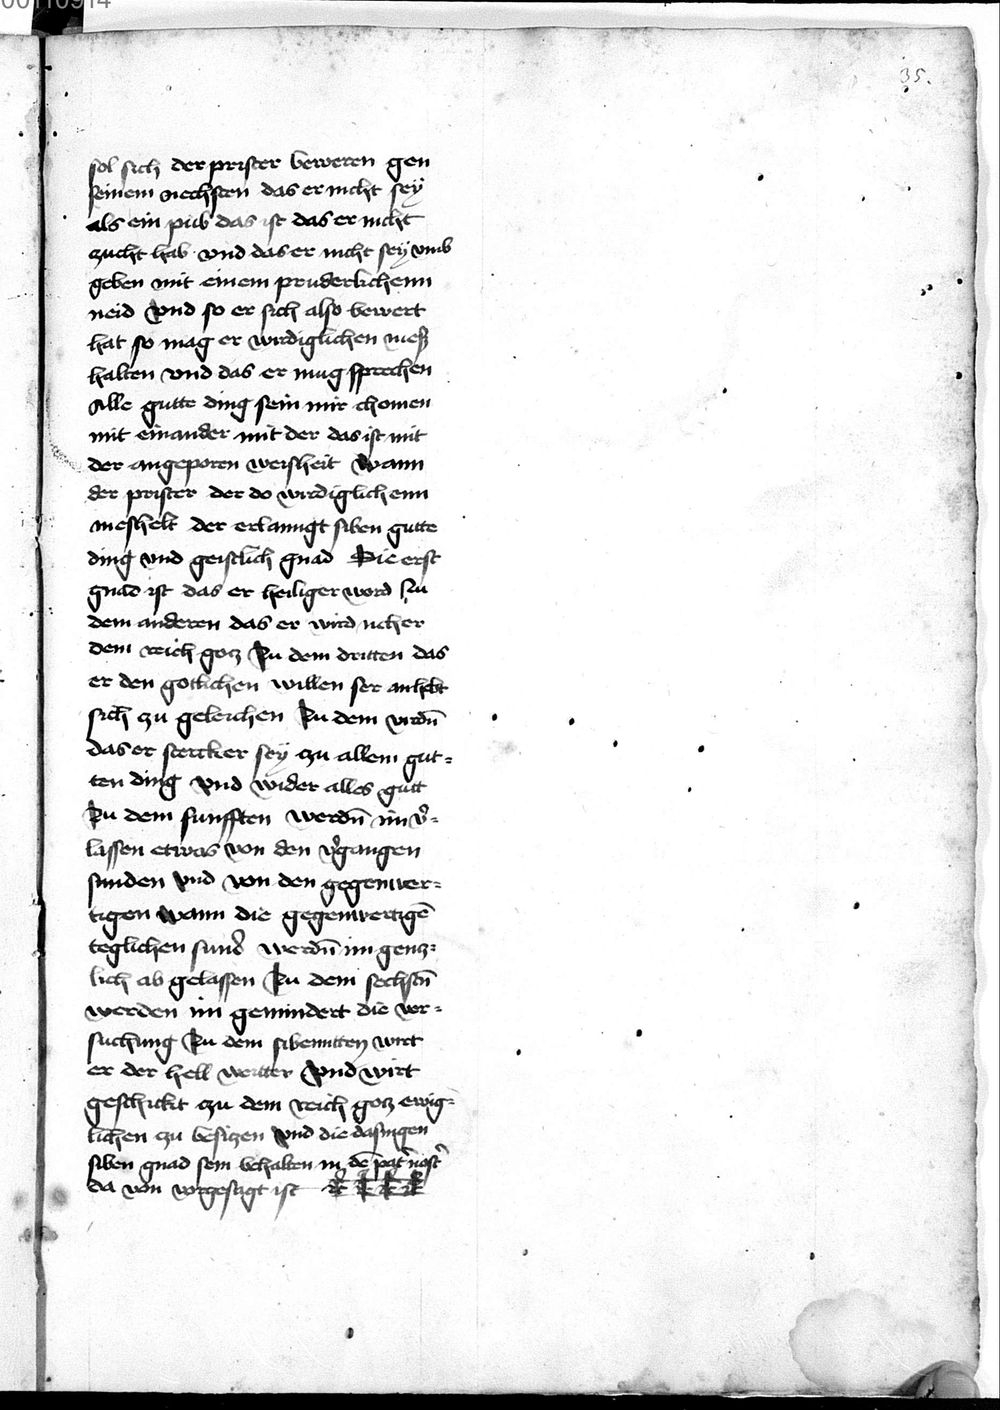 00110914
35.
sol sich der prister beweren gen
seinem nechsten das er nicht sey
als ein pub das ist das er nicht
zucht hab vnd das er nicht sey vmb
geben mit einem pruderlichenn
neid Vnd so er sich also bewert
hat so mag er wirdiglichen mess
halten vnd das er mug sprechen
Alle gutte ding sein mir chomen
mit einander mit der das ist mit
der angeporen weisheit Wann
der prister der do wirdiglichenn
meshelt der erlanngt siben gutte
ding vnd geistlich gnad Die erst
gnad ist das er heiliger word Zu
dem anderen das er wird nicher
dem reich gocz Zu dem dritten das
er den gotlichen willen ser anhebt
sich zu geleichen Zu dem virdn̄
das er stercker sey zu allem gut=
ten ding Vnd wider alles gutt
Zu dem funfften werdn̄ im v̉=
lassen etwas von den v̉gangen
sunden vnd von den gegenwer=
tigen wann die gegenwertigē
teglichen sund̉ werdn̄ im gencz=
lich ab gelassen Zu dem sechstn̄
werden im gemindert die ver=
suchung Zu dem sibenntten wirt
er der hell weitter Vnd wirt
geschickt zu dem reich gocz ewig=
lichen zu besiczen Vnd die dasingen
siben gnad sein behalten in dē pat̉ nost̉
da von vorgesagt ist